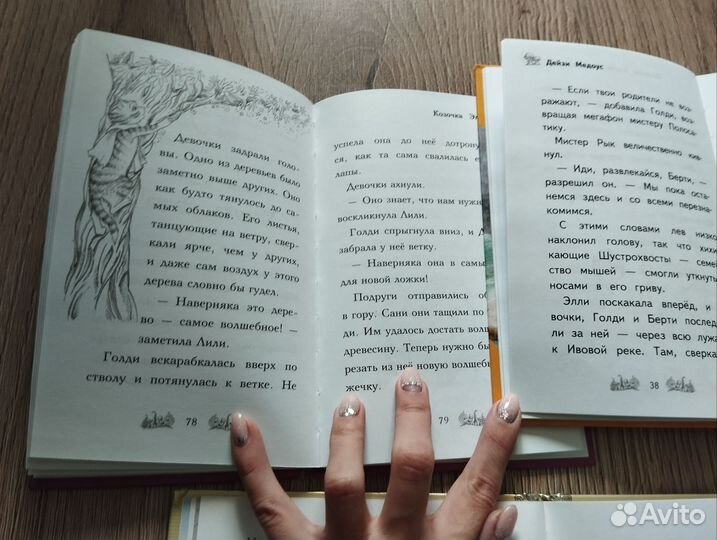 Девочки задрали голо-
вы. Одно из деревьев было
заметно выше других. Оно
как будто тянулось до са-
мых облаков. Его листья,
танцующие на ветру, свер-
кали ярче, чем у других,
и даже сам воздух у этого
дерева словно бы гудел.
— Наверняка это дере-
во — самое волшебное! —
заметила Лили.
Голди вскарабкалась вверх по
стволу и потянулась к ветке. Не
78
Козочка
успела она до неё дотрону
ся, как та сама свалилась
лапы.
Девочки ахнули.
— Оно знает, что нам нужн
воскликнула Лили.
Голди спрыгнула вниз, и
забрала у неё ветку.
— Наверняка она в самы
для новой ложки!
Подруги отправились об
в гору. Сани они тащили по
ди. Им удалось достать волш
древесину. Теперь нужно бы
резать из неё новую волшебн
жечку.
79
Дейзи Медоус
— Если твои родители не воз-
ражают, — добавила Голди, воз-
вращая мегафон мистеру Полоса-
тику.
Мистер Рык величественно кив-
нул.
— Иди, развлекайся, Берти, —
разрешил он. — Мы пока оста-
немся здесь и со всеми перезна-
комимся.
С этими словами лев низко
наклонил голову, так что хихи-
кающие Шустрохвосты — семей-
ство мышей — смогли уткнуть
носами в его гриву.
Элли поскакала вперёд, и
вочки, Голди и Берти послед
ли за ней — через всю лужа
к Ивовой реке. Там, сверка
38
Avito